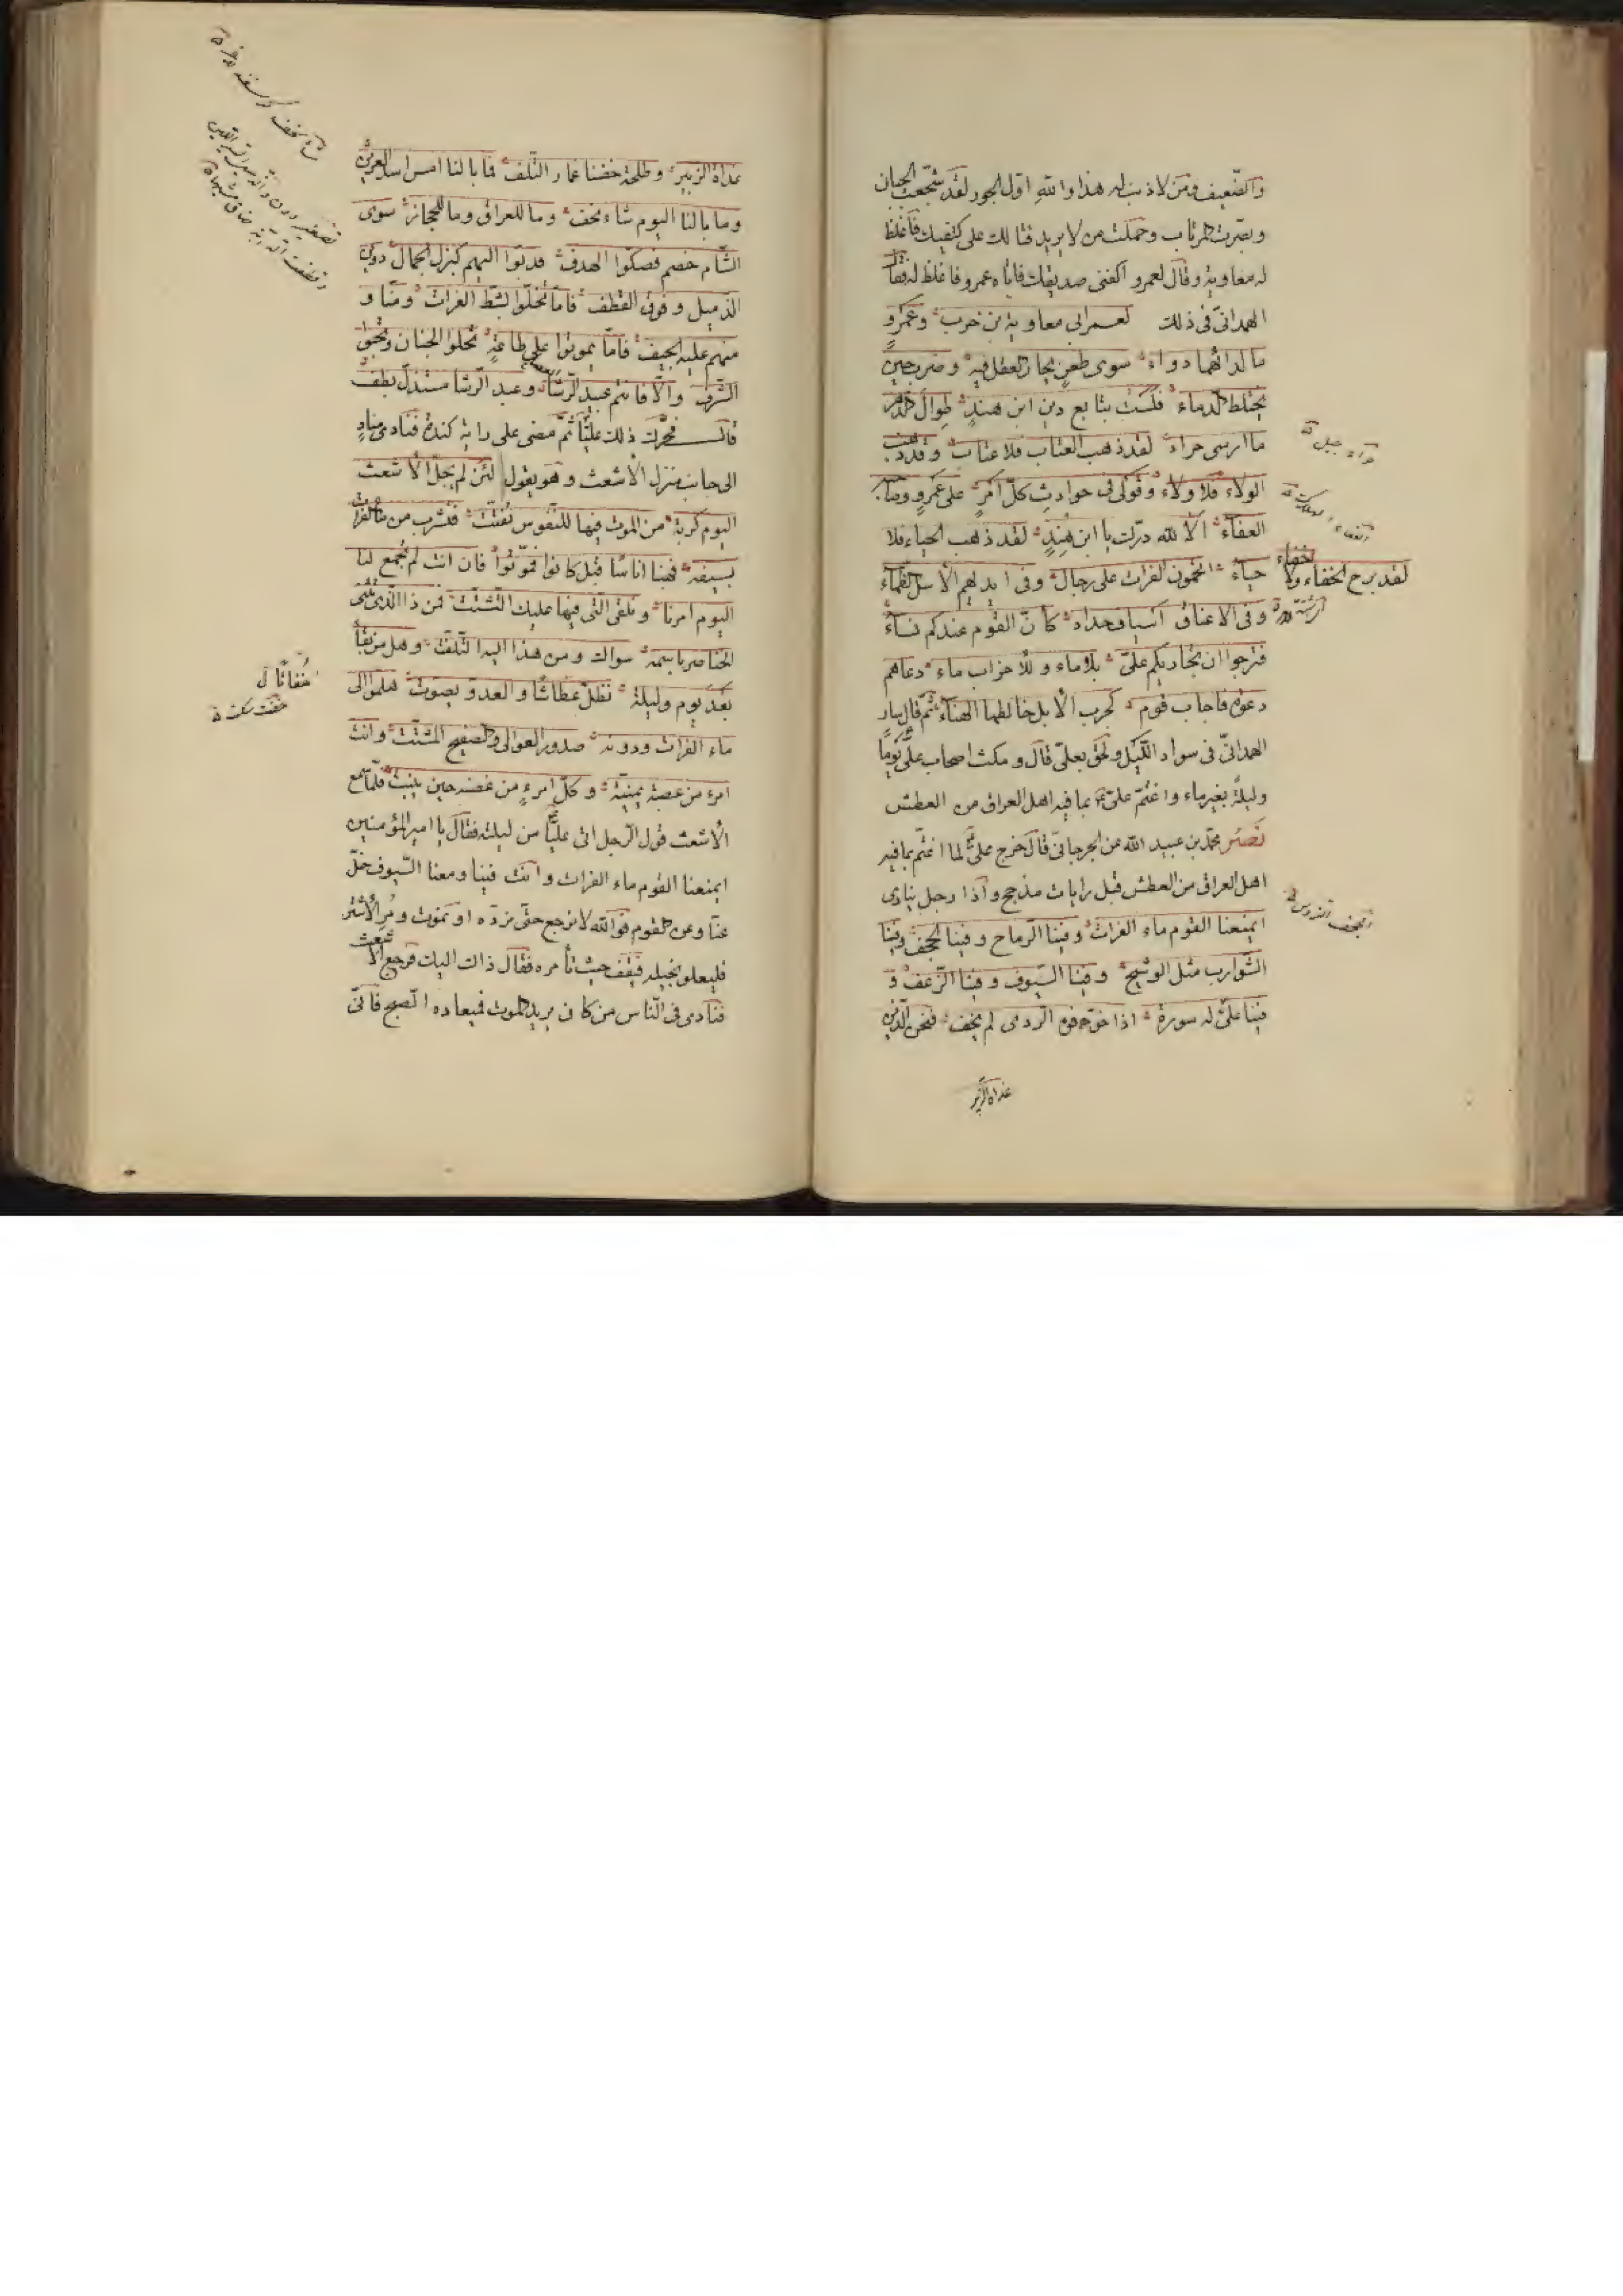 والضعيف ومن لا ذنب له هذا والله اول الجور لقد شجعت الجبان
وبصرت المرتاب وحملت من لا يريد قتالك على كتفيك فاغلظ
له معاوية وقال لعمرو اكفنى صديقك فاتاه عمرو فاغلظ له فقال
الهمدانىّ فى ذلك لعمر ابى معاوية بن حرب وعمرو
ما لدائهما دواء سوى طعن يحار العقل فيه وضرب حين
يختلط الدماء فلست بتابع دين ابن هند طوال الدهر
ما ارسى حراء لقد ذهب العتاب فلا عتاب وقد ذهب
الولاء فلا ولاء وقولى فى حوادث كلّ امر على عمرو وصاحبه
العفاء الا لله درّك يا ابن هند لقد ذهب الحياء فلا
حياء اتحمون الفرات على رجال وفى ايديهم الاسل الظماء
وفى الاعناق اسياف حداد كانّ القوم عندكم نساء
فترجوا ان يجاوركم علىّ بلا ماء وللاحزاب ماء دعاهم
دعوة فاجاب قوم كجرب الابل خالطها الهناء ثم قال سار
الهمدانىّ فى سواد الليل ولحق بعلىّ قال ومكث اصحاب علىّ يومًا
وليلةً بغير ماء واغتمّ علىّ بما فيه اهل العراق من العطش
نصر محمّد بن عبيد الله عن الجرجانىّ قال خرج علىّ لما اغتمّ بما فيه
اهل العراق من العطش قبل رايات مذحج واذا رجل ينادى
ايمنعنا القوم ماء الفرات وفينا الرماح وفينا الحجف وفينا
الشوارب مثل الوشيج وفينا السيوف وفينا الزعف و
فينا علىّ له سورة اذا خوّفوه الردى لم يخف فنحن الذين
غداة الزبير
حراء جبل
لقد برح الخفاء ولا خفاء
غداة الزبير وطلحة خضنا غمار التلف فما بالنا امس اسد العرين
وما بالنا اليوم شاء نحف وما للعراق وما للحجاز سوى
الشام خصم فصكّوا الهدف فدبّوا اليهم كبزل الجمال دوين
الذميل وفوق القطف فامّا تحلّوا بشطّ الفرات ومنّا و
منهم عليه الجيف فامّا يموتوا على طاعة تحلوا الجنان وتحبو
الشرف والّا فانتم عبيد الرشاء وعبد الرشا مستذلّ نطف
قال فحرّك ذلك عليًّا ثمّ مضى على راية كندة فنادى مناد
الى جانب منزل الاشعث وهو يقول لئن لم يجلّ الاشعث
اليوم كربة من الموت فيها للنفوس تفتّت فنشرب من ماء الفرات
بسيفه فهبنا اناسًا قبل كانوا فموّتوا فان انت لم تجمع لنا
اليوم امرنا وتلقى الّتى فيها عليك التشتّت فمن ذا الّذى تثنى
الخناصر باسمه سواك ومن هذا اليه التلفّت وهل من بقاء
بعد يوم وليلة نظلّ عطاشًا والعدوّ يصوّت هلمّوا الى
ماء الفرات ودونه صدور العوالى والصفيح المشتّت وانت
امرء من عصبة يمنيّة وكلّ امرء من غصنه حين ينبت فلمّا سمع
الاشعث قول الرجل اتى عليًّا من ليلته فقال يا امير المؤمنين
ايمنعنا القوم ماء الفرات وانت فينا ومعنا السيوف خلّ
عنّا وعن القوم فوالله لا نرجع حتّى نرده او نموت ومر الاشتر
فليعلو بخيله فيقف حيث تأمره فقال ذاك اليك فرجع الاشعث
فنادى فى النّاس من كان يريد الموت فميعاده الصبح فانّى
خفاتًا ل
خفت سكت